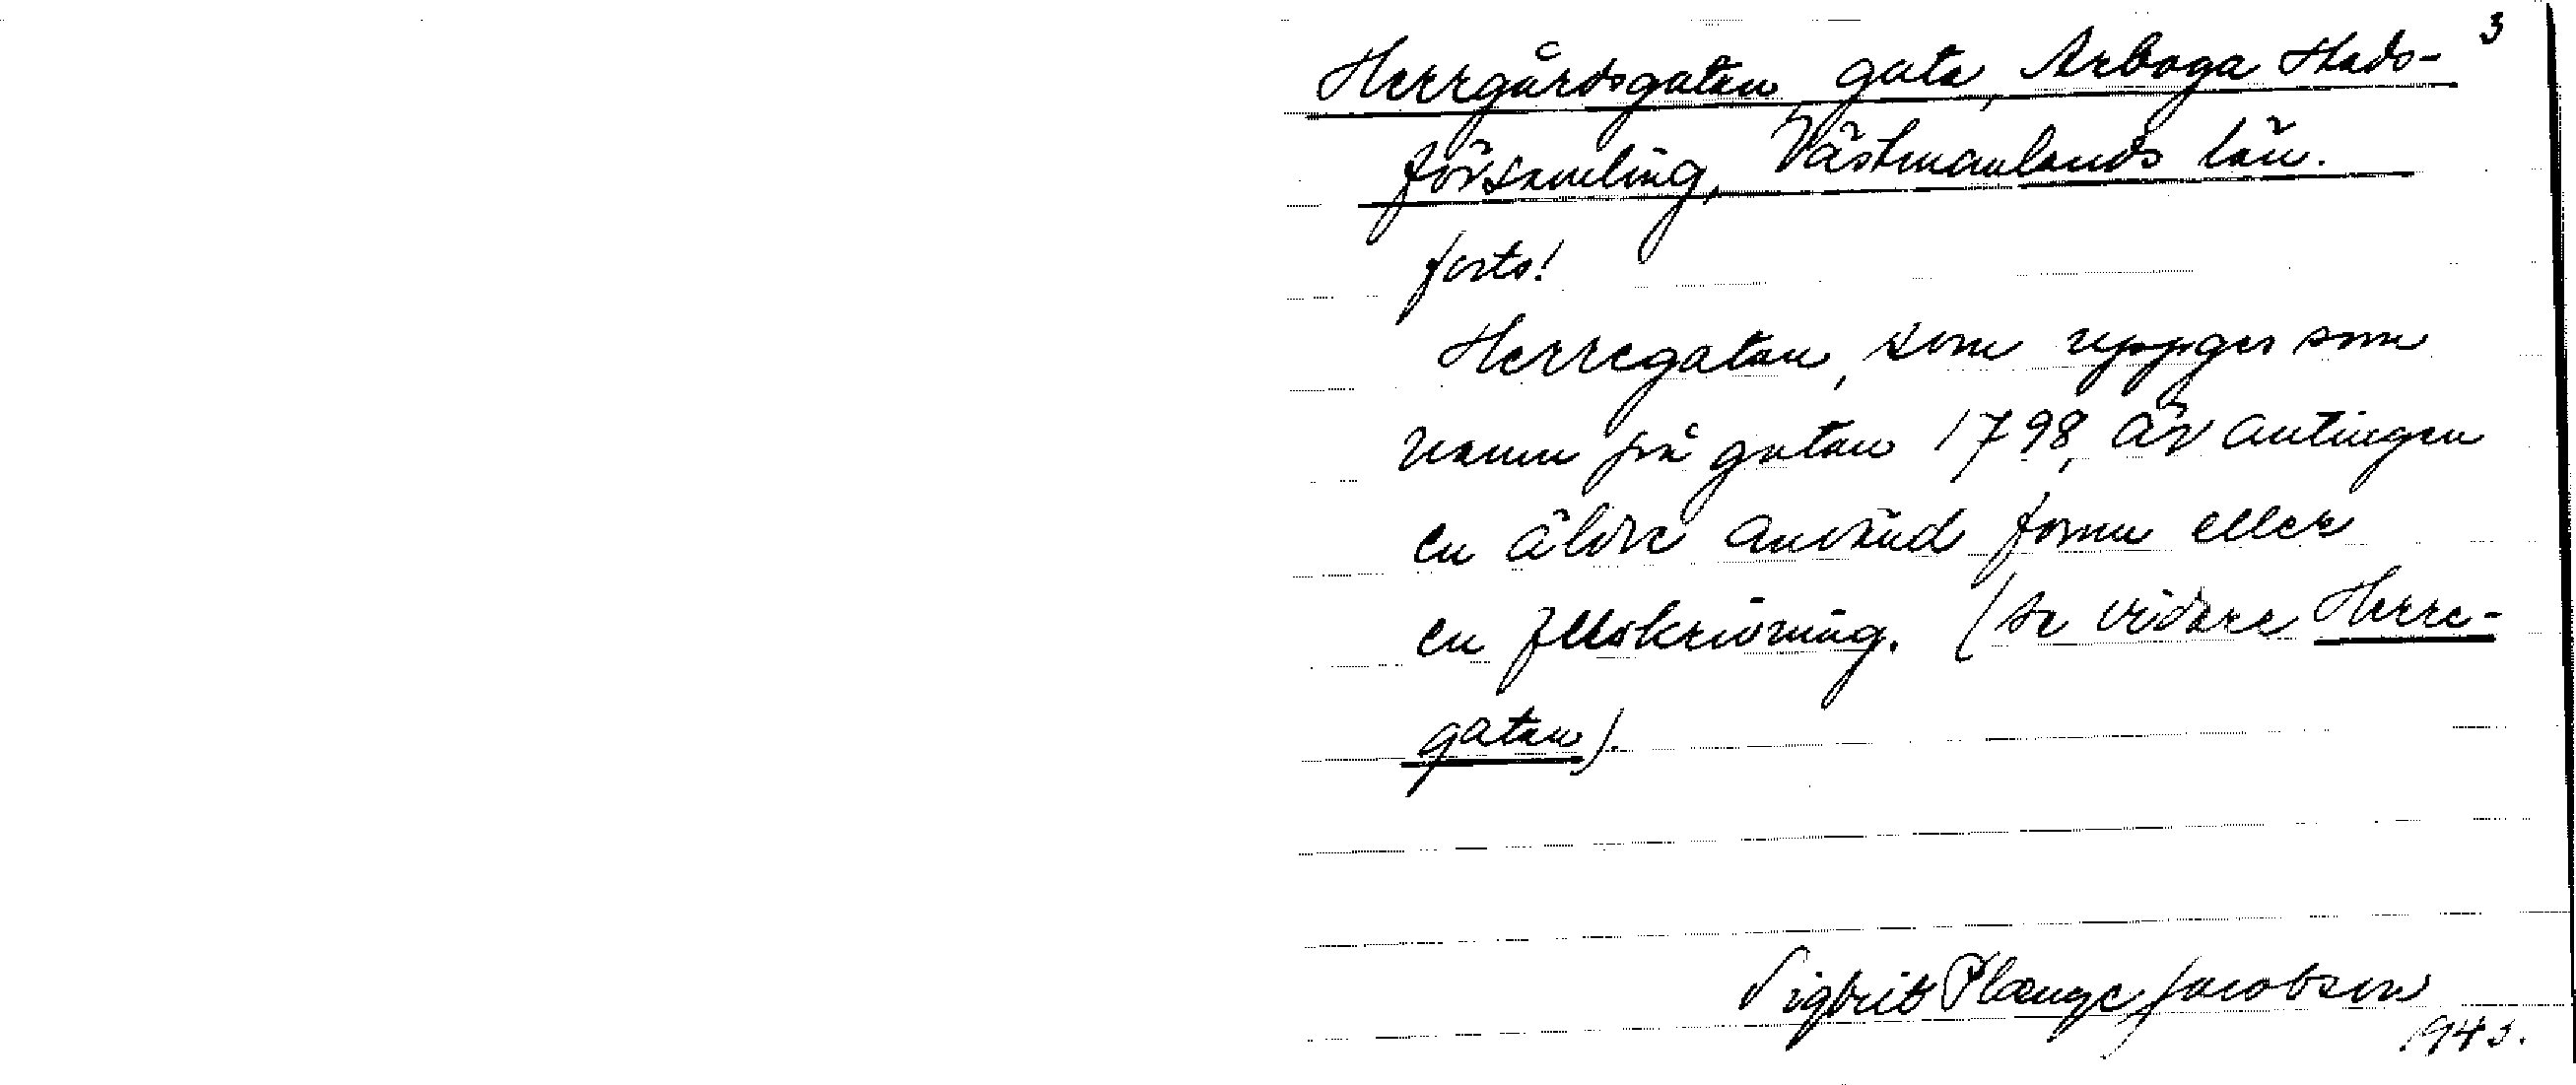 3
Herrgårdsgatan, gata, Arboga stads-
församling, Västmanlands län.
forts!
Herregatan, som uppges som
namn på gatan 1798, är antingen
en äldre använd form eller
en felskrivning. (Se vidare Herre-
gatan).
Sigbrit Plænge Jacobson
1943.